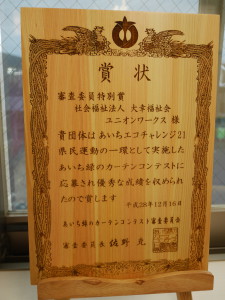 賞状
審査委員特別賞
社会福祉法人 大幸福祉会
ユニオンワークス 様
貴団体は あいちエコチャレンジ21
県民運動の一環として実施した
あいち緑のカーテンコンテストに
応募され優秀な成績を収められ
たので賞します
平成28年12月16日
あいち緑のカーテンコンテスト審査委員会
審査委員長 佐野 充